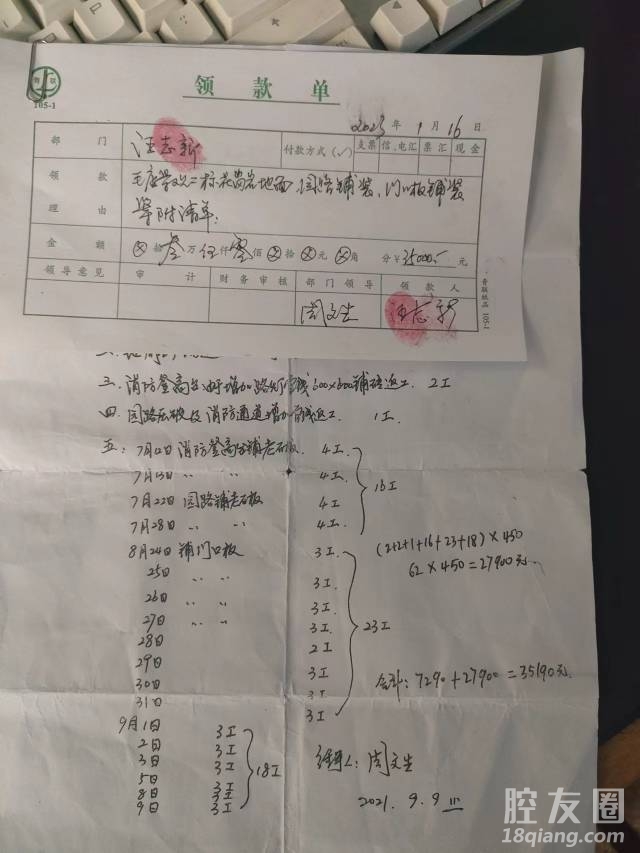 105-1
领款单
2023年1月16日
部门 汪志新 付款方式(✓) 支票 信、电汇 票汇 现金
领款理由 地面、园路铺装、门口板铺装
附清单:
金额 ⊗拾叁万伍仟零佰⊗拾⊗元⊗角 分¥35000.- 元
领导意见 审计 财务审核 部门领导 领款人
周文生 汪志新
105-1
三.消防登高 由于增加路灯 600×600铺砖返工. 2工
四.园路 及消防通道增加 返工. 1工.
五:7月12日 消防登高 铺老石板. 4工.
7月13日 〃 〃 4工.
7月22日 园路铺老石板 4工
7月28日 〃 〃 4工.
16工
8月24日 铺门口板 3工.
25日 〃 〃 3工.
26日 〃 〃 3工.
27日 〃 〃 3工.
28日 2工
29日 3工
30日 3工
31日 3工
23工
(2+2+1+16+23+18)×450
62×450=27900元.
合计:7290+27900=35190元.
9月1日 3工
2日 3工
3日 3工
5日 3工
8日 3工
9日 3工
18工
经手人:周文生
2021.9.9
腔友圈
18qiang.com